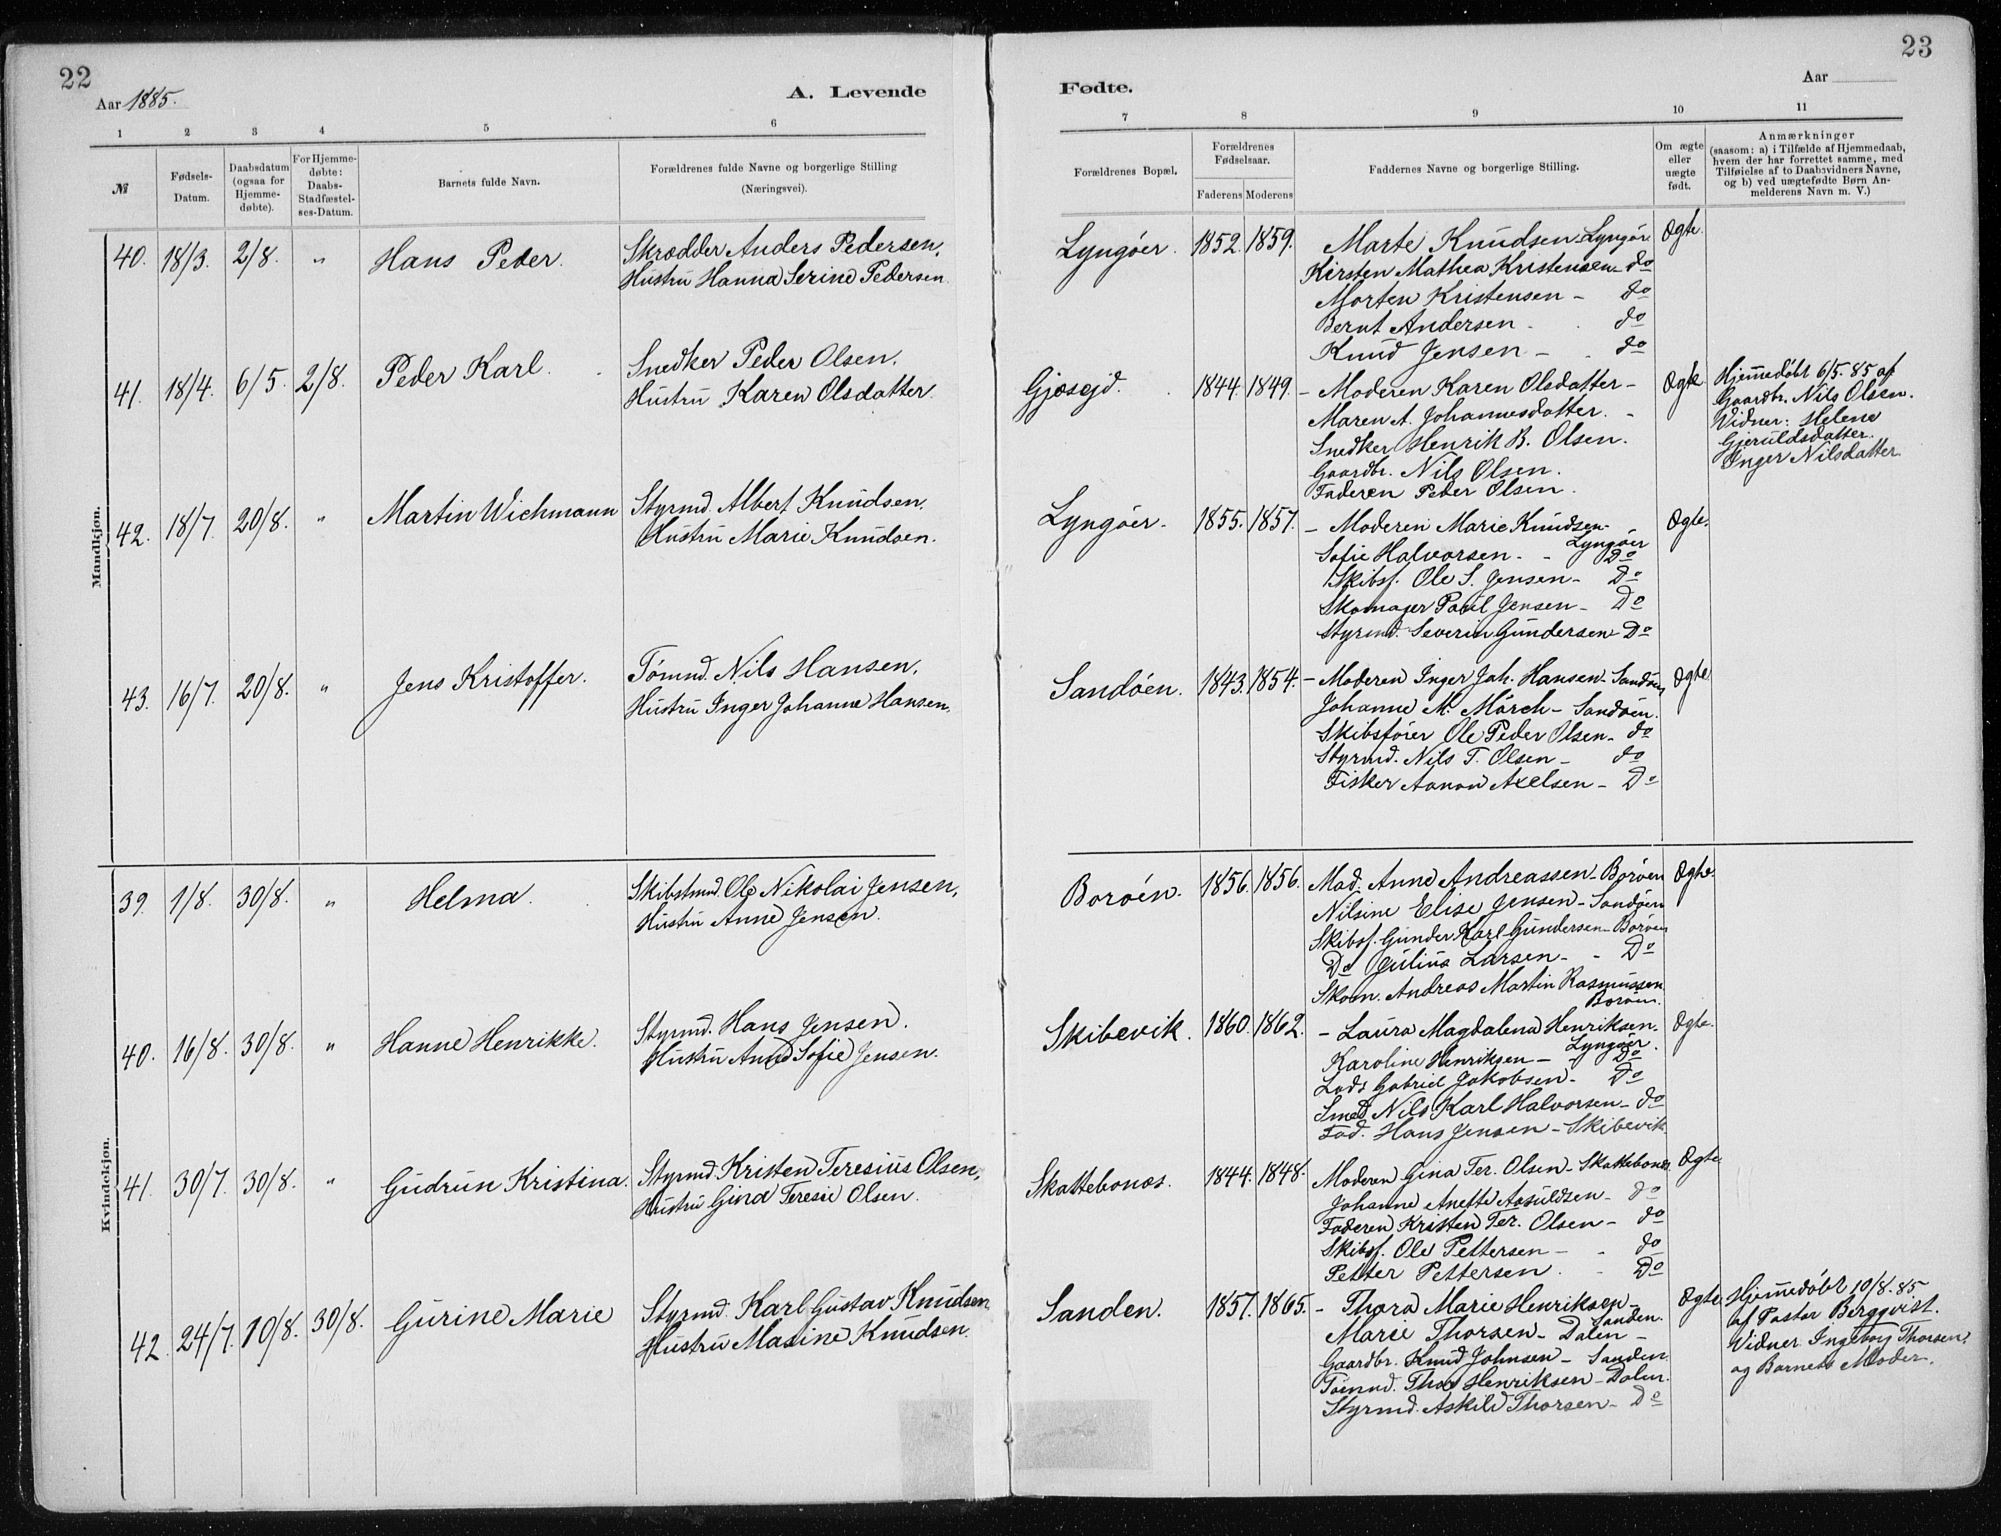 22
Aar 1885.
A. Levende
1 2 3 4 5 6
№
Fødsels-
Datum.
Daabsdatum
(ogsaa for
Hjemme-
døbte).
For Hjemme-
døbte:
Daabs-
Stadfæstel-
ses-Datum.
Barnets fulde Navn.
Forældrenes fulde Navne og borgerlige Stilling
(Næringsvei).
Mandkjøn.
40. 18/3. 2/8. " Hans Peder.
Skrædder Anders Pedersen,
Hustru Hanna Serine Pedersen
41. 18/4. 6/5. 2/8. Peder Karl.
Snedker Peder Olsen.
Hustru Karen Olsdatter
42. 18/7. 20/8. " Martin Wichmann
Styrmd. Albert Knudsen.
Hustru Marie Knudsen.
43. 16/7. 20/8. " Jens Kristoffer.
Tømmd. Nils Hansen,
Hustru Inger Johanne Hansen.
Kvindekjøn.
39. 1/8. 30/8. " Helma.
Skibstmd. Ole Nikolai Jensen,
Hustru Anne Jensen.
40. 16/8. 30/8. " Hanne Henrikke.
Styrmd. Hans Jensen.
Hustru Anne Sofie Jensen.
41. 30/7. 30/8. " Gudrun Kristina.
Styrmd. Kristen Teresius Olsen,
Hustru Gina Teresie Olsen.
42 24/7. 10/8. 30/8. Gurine Marie
Styrmd. Karl Gustav Knudsen
Hustru Maxine Knudsen.
23
Fødte.
Aar
7 8 9 10 11
Forældrenes Bopæl.
Forældrenes
Fødselsaar.
Faderens Moderens
Faddernes Navne og borgerlige Stilling.
Om ægte
eller
uægte
født.
Anmærkninger
(saasom: a) i Tilfælde af Hjemmedaab,
hvem der har forrettet samme, med
Tilføielse af to Daabsvidners Navne,
og b) ved uægtefødte Børn An-
melderens Navn m. V.)
Lyngøer. 1852. 1859. Marte Knudsen Lyngør Ægte.
Kirsten Mathea Kristensen - do
Morten Kristensen - do
Bernt Andersen - do
Knud Jensen - do
Gjøsejd. 1844. 1849. - Moderen Karen Olsdatter - Ægte
Maren A. Johannesdatter. -
Snedker Henrik B. Olsen.
Gaardbr. Nils Olsen.
Faderen Peder Olsen.
Hjemmedøbt 6/5. 85 af
Gaardbr. Nils Olsen.
Vidner: Helene
Gjeruldsdatter.
Inger Nilsdatter.
Lyngøer. 1855. 1857. - Moderen Marie Knudsen - Ægte.
Lyngøer
Sofie Halvorsen. - Do
Skibsf. Ole S. Jensen - Do
Skomager Poul Jensen - Do
Styrmd. Severin Gundersen - Do
Sandøen. 1843. 1854. - Moderen Inger Joh. Hansen. Sandøen Ægte
Johanne M. Mørch - Sandøen.
Skibsfører Ole Peder Olsen - do
Styrmd. Nils T. Olsen - do
Fisker Aanon Axelsen - Do
Borøen. 1856. 1856. Mad. Anne Andreassen - Borøen Ægte.
Nilsine Elise Jensen - Sandøen
Skibsf. Gunder Karl Gundersen - Borøen
Do Julius Larsen - Do
Skom. Andreas Martin Rasmussen
Borøen.
Skibevik. 1860. 1862. - Laura Magdalena Henriksen. Ægte.
Lyngøer.
Karoline Henriksen - Do
Lods Gabriel Jakobsen - Do
Smed Nils Karl Halvorsen - do
Fad. Hans Jensen - Skibevik
Skattebonæs. 1844. 1848. Moderen Gina Ter. Olsen - Skattebonæs Ægte
Johanne Anette Aasuldsen - do
Faderen Kristen Ter. Olsen - do
Skibsf. Ole Pettersen - do
Petter Pettersen. - Do
Sanden. 1857. 1865. - Thora Marie Henriksen - Ægte
Sanden.
Marie Thorsen - Dalen -
Gaardbr. Knud Johnsen - Sanden
Tømmd. Thor Henriksen - Dalen.
Styrmd. Askild Thorsen - Do
Hjemmedøbt 10/8. 85
af Pastor Bergqvist.
Vidner Ingeborg Thorsen.
og Barnets Moder.